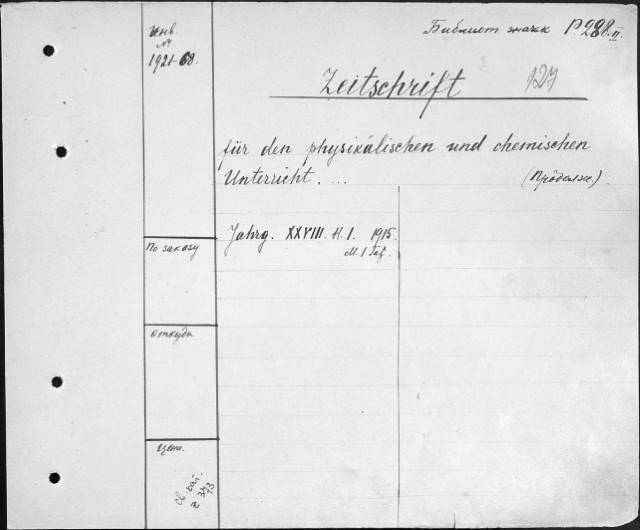 Инв.
№
1921-68.
Библиот значк P.288.II
Zeitschrift 127
für den physikalischen und chemischen
Unterricht. ... (Продолж.)
Jahrg. XXVIII. H. 1. 1915.
M. 1 Taf.
По заказу
откуда
Цена.
Св. кат.
№ 373